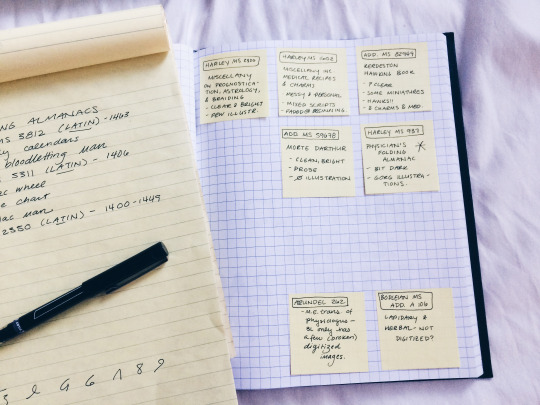 NG ALMANACS
MS 3812 (LATIN) - 1463
calendars
bloodletting man
5311 (LATIN) - 1406
wheel
chart
man
2350 (LATIN) - 1400-1449
MISCELLANY
ON PROGNOSTICA-
TION, ASTROLOGY,
& BRAIDING
- CLEAR & BRIGHT
- FEW ILLUSTR.
HARLEY MS
MISCELLANY INC.
MEDICAL RECIPES
& CHARMS
MESSY & PERSONAL
- MIXED SCRIPTS
- FADED @ BEGINNING.
ADD. MS 82949
KERDESTON
HAWKING BOOK
- CLEAR
- SOME MINIATURES
- HAWKS!!
- & CHARMS & MED.
ADD MS 59678
MORTE DARTHUR
- CLEAN, BRIGHT
- PROSE
- Ø ILLUSTRATION
HARLEY MS 937
PHYSICIAN'S
FOLDING
ALMANAC
- BIT DARK
- GORG ILLUSTRA-
TIONS.
ARUNDEL 292
- M.E. trans. of
physiologus -
BL only has
a few (broken)
digitized
images.
BODLEIAN MS
ADD. A 106
LAPIDARY &
HERBAL - NOT
DIGITIZED?